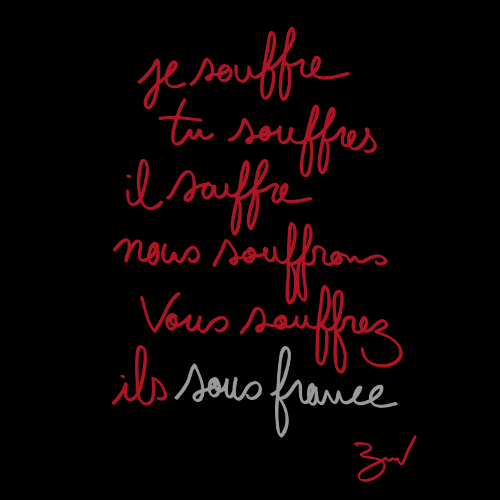 je souffre
tu souffres
il souffre
nous souffrons
Vous souffrez
ils sous france